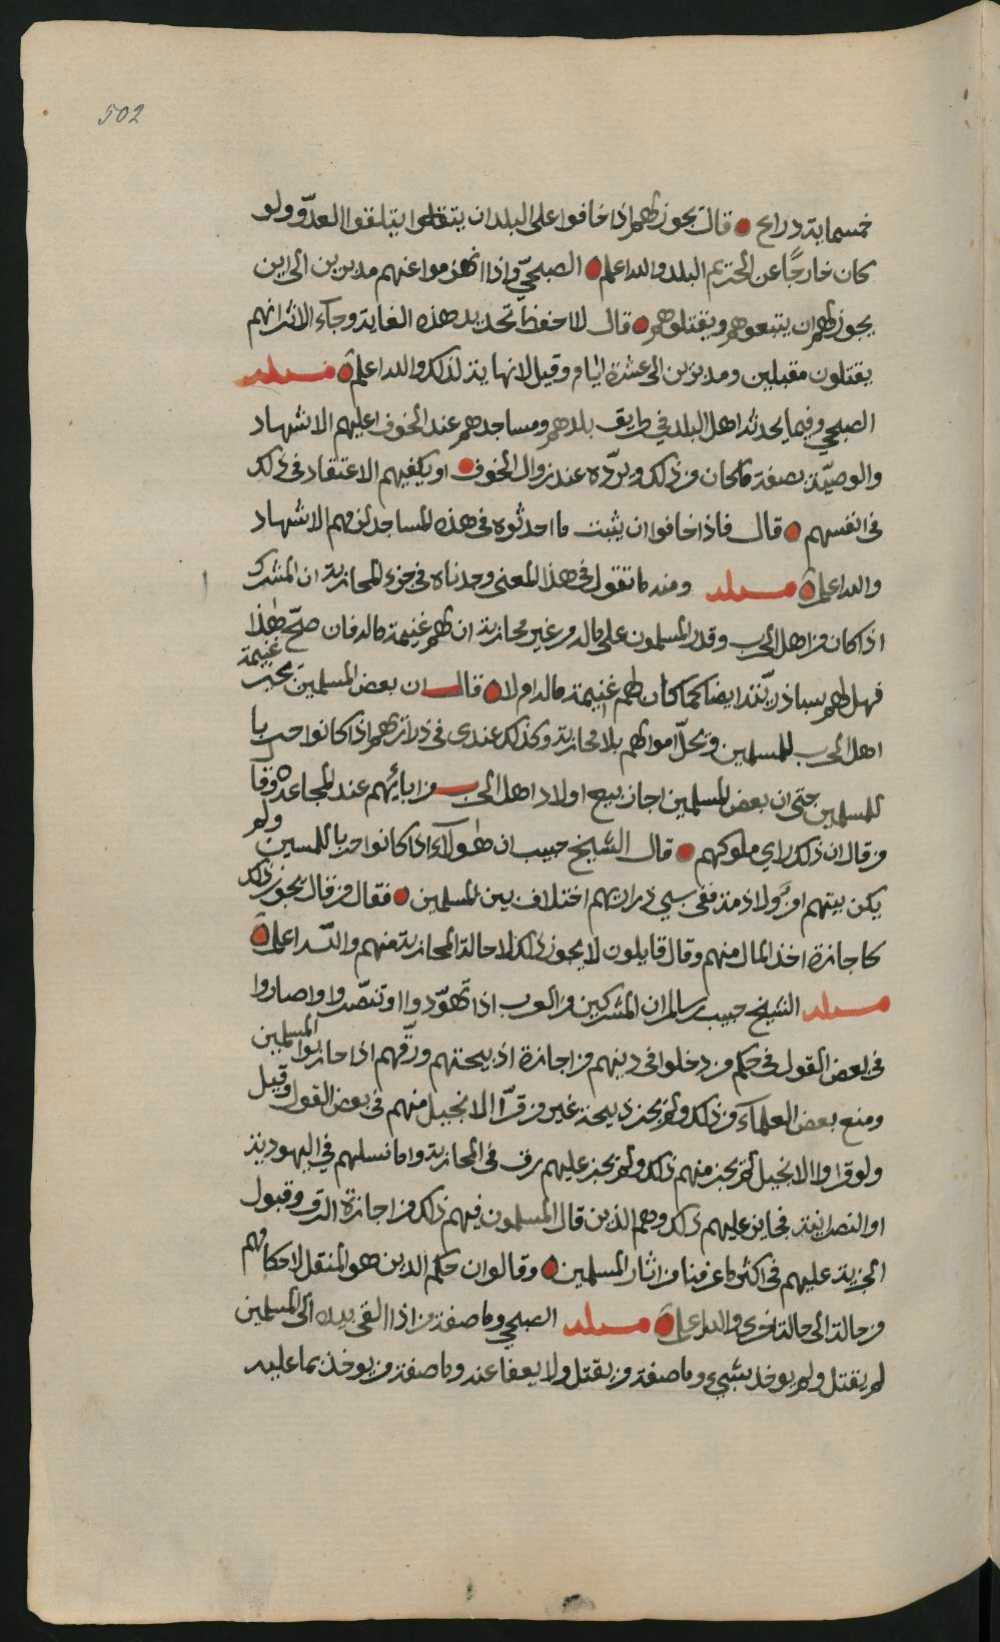 502
خمسماية ذراع قال يجوز لهم اذا خافوا على البلد ان يتقدموا يتلقوا العدوّ ولو
كان خارجًا عن الحريم البلد والله اعلم الصبحيّ واذا انهزموا عنهم مدبرين الى اين
يجوز لهم ان يتبعوهم ويقتلوهم قال لا احفظ تحديد هذه الغاية وجآء الاثر انهم
يقتلون مقبلين ومدبرين الى عشرة ايام وقيل لا نهاية لذلك والله اعلم مسئله
الصبحي وفيما يحدثه اهل البلد في طريق بلدهم ومساجدهم عند الخوف اعليهم الاشهاد
والوصيّة بصفة ما كان من ذلك ويردّه عند زوال الخوف او يكفيهم الاعتقاد في ذلك
في انفسهم قال فاذا خافوا ان يثبت ما احدثوه في هذه المساجد لزمهم الاشهاد
والله اعلم مسئله ومنه ما تقول في هذا المعنى وجدناه في جزء المحاربة ان المشرك
اذا كان من اهل الحرب وقدر المسلمون على ماله من غير محاربة ان لهم غنيمة ماله فان صحّ هذا
فهل لهم سبا ذريّته ايضا كما كان لهم غنيمة ماله ام لا قال ان بعض المسلمين يجيز غنيمة
اهل الحرب للمسلمين ويحلّ اموالهم بلا محاربة وكذلك عندي في ذراريهم اذا كانوا حربا
للمسلمين حتى ان بعض المسلمين اجاز بيع اولاد اهل الحرب من ابائهم عند المجاعة وقا
من قال ان ذلك راي ملوكهم قال الشيخ حبيب ان هولآء اذا كانوا حربا للمسلمين ولم
يكن بينهم امن ولا ذمة ففي سبي ذراريهم اختلاف بين المسلمين فقال من قال يجوز ذلك
كاجازة اخذ المال منهم وقال قايلون لا يجوز ذلك الا حالة المحاربة منهم والله اعلم
مسئله الشيخ حبيب بن سالم ان المشركين من العرب اذا تهوّدوا او تنصّروا واصاروا
في بعض القول في حكم من دخلوا في دينهم من اجازة اذبيحتهم ورقّهم اذا حاربوا المسلمين
ومنع بعض العلمآء من ذلك ولم يجز ذبيحة غير من قرأ الانجيل منهم في بعض القول وقيل
ولو قراوا الانجيل لم يجز منهم ذلك ولم يجز عليهم رق في المحاربة واما نسلهم في اليهودية
او النصرانية فجايز عليهم ذلك وهم الذين قال المسلمون فيهم ذلك من اجازة الرق وقبول
الجزية عليهم في اكثر ما عرفنا من اثار المسلمين وقالوا ان حكم الدين هو المنقل لاحكامهم
من حالة الى حالة اخرى والله اعلم مسئله الصبحي وما صفة من اذا القى بيده الى المسلمين
لم يقتل ولم يوخذ بشيء وما صفة من يقتل ولا يعفا عنه وما صفة من يوخذ بما عليه